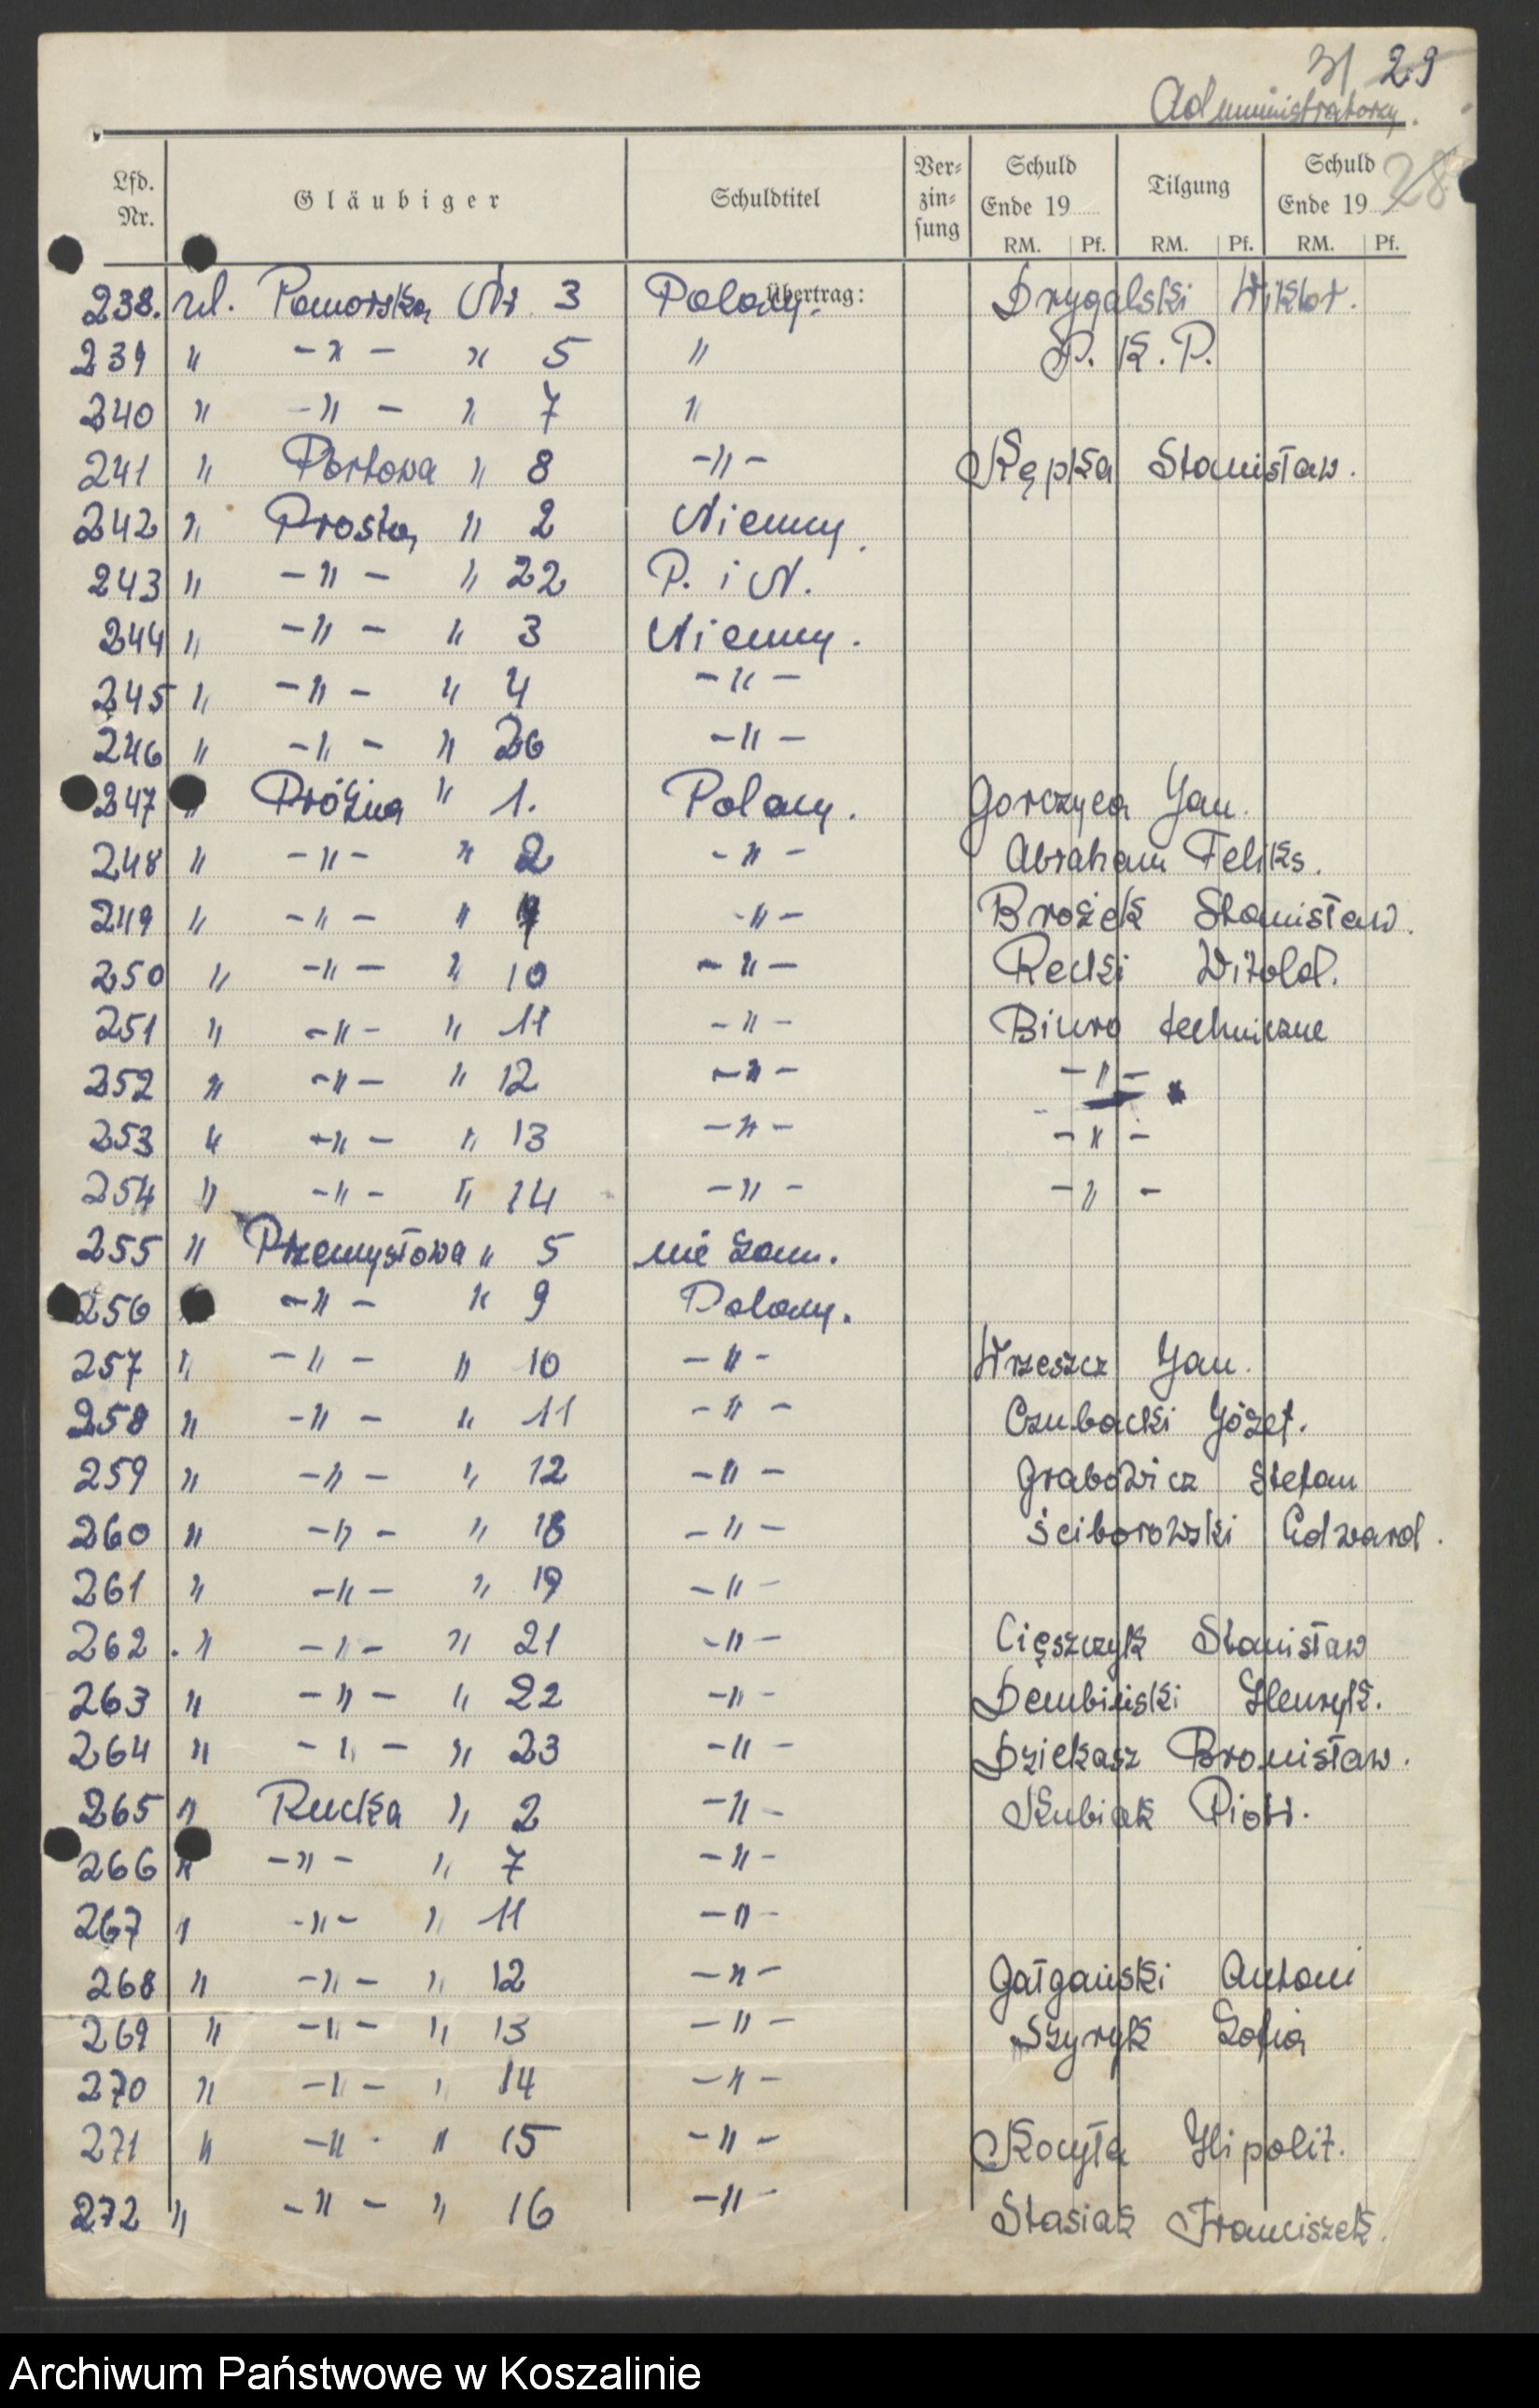 31 29
Administratorzy.
28
Lfd. Nr. Gläubiger Schuldtitel Ver-zin-sung Schuld Ende 19 Tilgung Schuld Ende 19
RM. Pf. RM. Pf. RM. Pf.
Übertrag:
238. ul. Pomorska Nr 3 Polacy. Drygalski Wiktor.
239 " -"- " 5 " P.K.P.
240 " -"- " 7 "
241 " Portowa " 8 -"- Kępka Stanisław.
242 " Prosta " 2 Niemcy.
243 " -"- " 22 P. i N.
244 " -"- " 3 Niemcy.
245 " -"- " 4 -"-
246 " -"- " 26 -"-
247 " Próżna " 1. Polacy. Gorczyca Jan.
248 " -"- " 2 -"- Abraham Feliks.
249 " -"- " -"- Brożek Stanisław.
250 " -"- " 10 -"- Recki Witold.
251 " -"- " 11 -"- Biuro techniczne
252 " -"- " 12 -"- -"-
253 " -"- " 13 -"- -"-
254 " -"- " 14 -"- -"-
255 " Przemysłowa " 5 nie zam.
256 -"- " 9 Polacy.
257 " -"- " 10 -"- Wrzeszcz Jan.
258 " -"- " 11 -"- Czubacki Józef.
259 " -"- " 12 -"- Grabowicz Stefan
260 " -"- " 18 -"- Ściborowski Edward.
261 " -"- " 19 -"-
262. " -"- " 21 -"- Cięszczyk Stanisław
263 " -"- " 22 -"- Dembiński Henryk.
264 " -"- " 23 -"- Dziekasz Bronisław.
265 " Rucka " 2 -"- Kubiak Piotr.
266 " -"- " 7 -"-
267 " -"- " 11 -"-
268 " -"- " 12 -"- Gałgański Antoni
269 " -"- " 13 -"- Szyryk Zofia
270 " -"- " 14 -"-
271 " -"- " 15 -"- Kocyła Hipolit.
272 " -"- " 16 -"- Stasiak Franciszek.
Archiwum Państwowe w Koszalinie